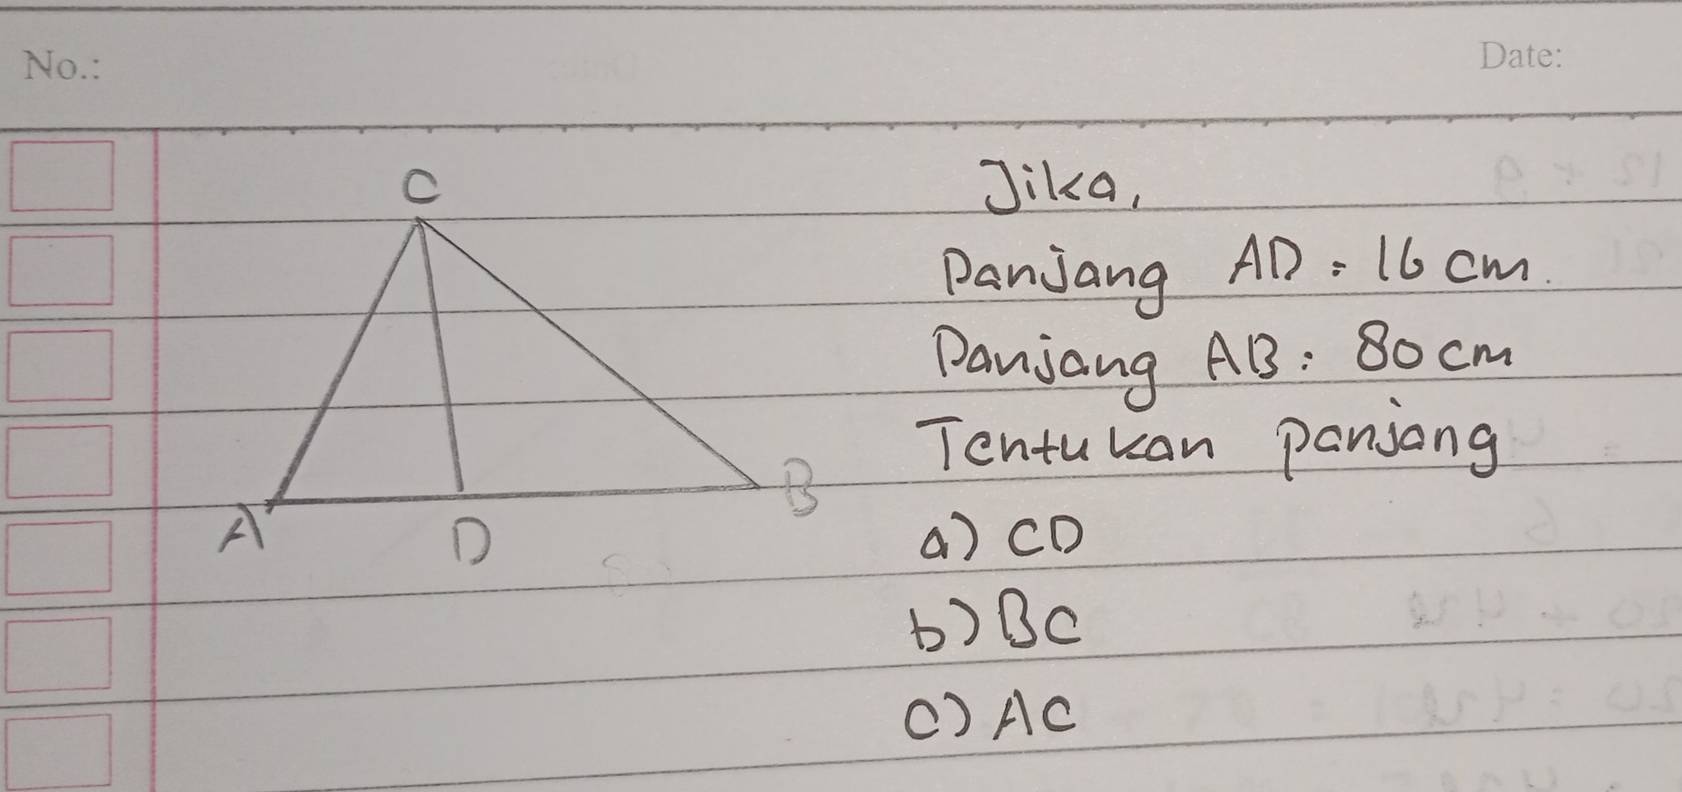 No.:
Date:
C
A
D
B
Jika,
Panjang AD = 16 cm.
Panjang AB : 80 cm
Tentukan panjang
a) CD
b) BC
c) AC